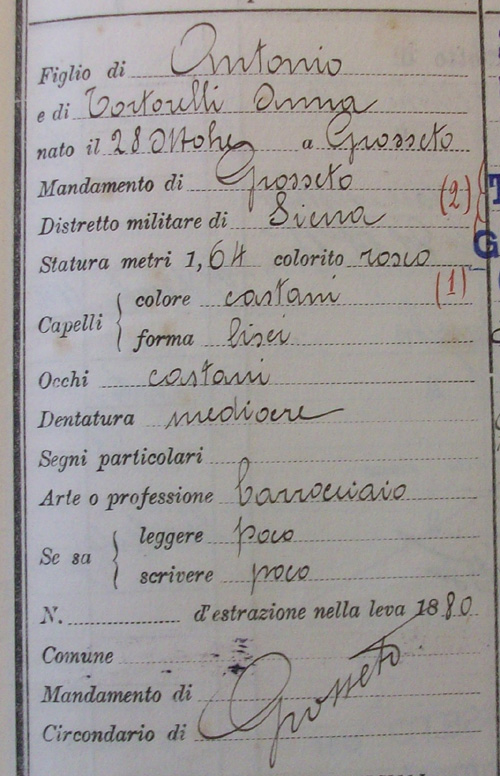 Figlio di Antonio
e di Tortorelli Anna
nato il 28 Ottobre a Grosseto
Mandamento di Grosseto
(2)
Distretto militare di Siena
Statura metri 1,64 colorito roseo
Capelli { colore castani (1)
forma lisci
Occhi castani
Dentatura mediocre
Segni particolari
Arte o professione barrocciaio
Se sa { leggere poco
scrivere poco
N. d'estrazione nella leva 1880
Comune
Mandamento di
Circondario di Grosseto